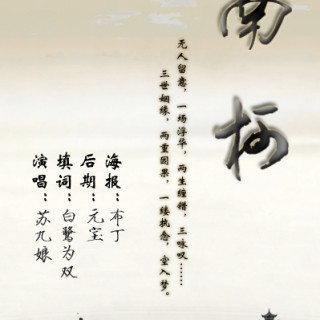 南柯
无人留意，一场浮华，两生缠错，三咏叹……
三世姻缘，两重因果，一缕执念，空入梦。
海报：布丁
后期：元宝
填词：白鹭为双
演唱：苏九娘